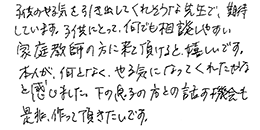 子供のやる気を引き出してくれそうな先生で、期待
しています。子供にとって、何でも相談しやすい
家庭教師の方に来て頂けると嬉しいです。
本人が、何となく、やる気になってくれたかな
と感じました。下の息子の方との話す機会も
是非、作って頂きたいです。